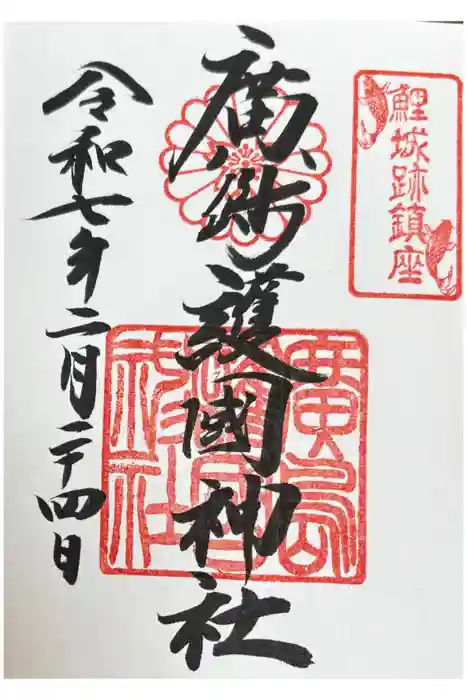 鯉城跡鎮座
廣島護國神社
令和七年二月二十四日
廣島
護國
神社